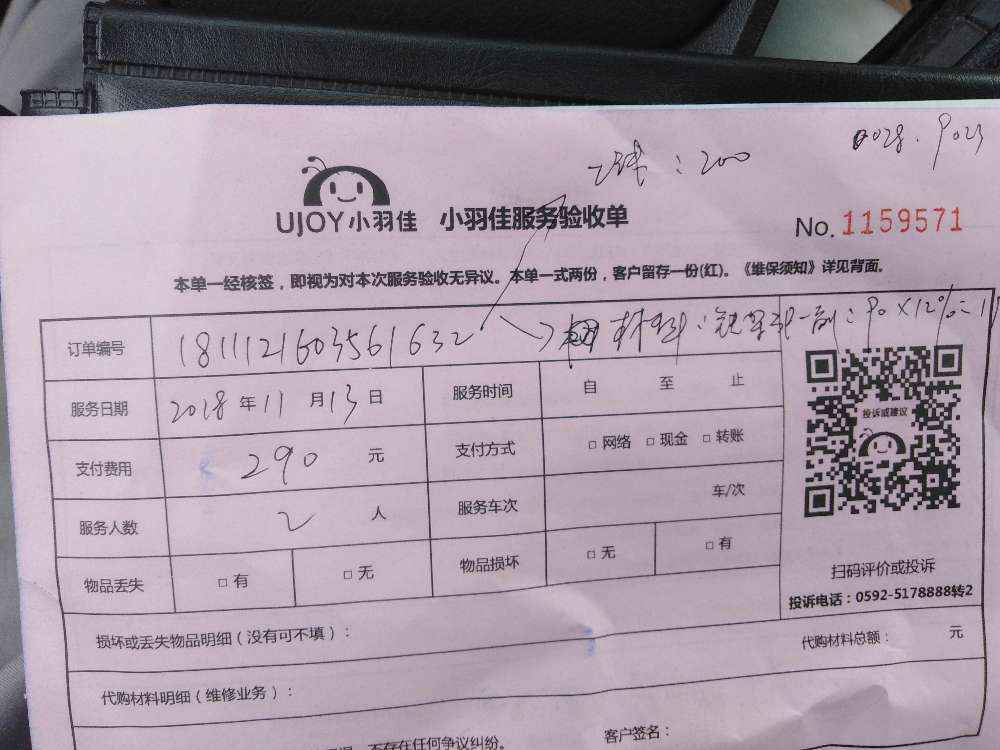 0028. P023
:200
UJOY小羽佳 小羽佳服务验收单
No. 1159571
本单一经核签，即视为对本次服务验收无异议。本单一式两份，客户留存一份(红)。《维保须知》详见背面。
材料：一副：90×12%=1
订单编号 1811121603561632
服务日期 2018年11月13日 服务时间 自 至 止
投诉或建议
支付费用 290元 支付方式 □网络 □现金 □转账
服务人数 2人 服务车次 车/次
物品丢失 □有 □无 物品损坏 □无 □有
扫码评价或投诉
投诉电话：0592-5178888转2
损坏或丢失物品明细（没有可不填）： 代购材料总额： 元
代购材料明细（维修业务）：
不存在任何争议纠纷。 客户签名：